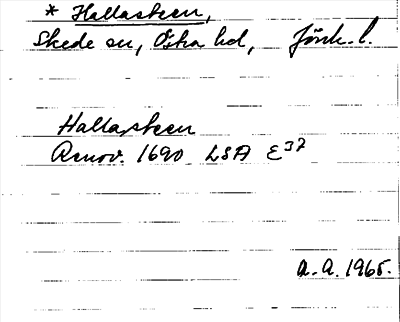 * Hallasteen,
Skede sn, Östra hd, Jönk. l.
Hallasteen
Renov. 1690 LSA E37
A.A. 1965.